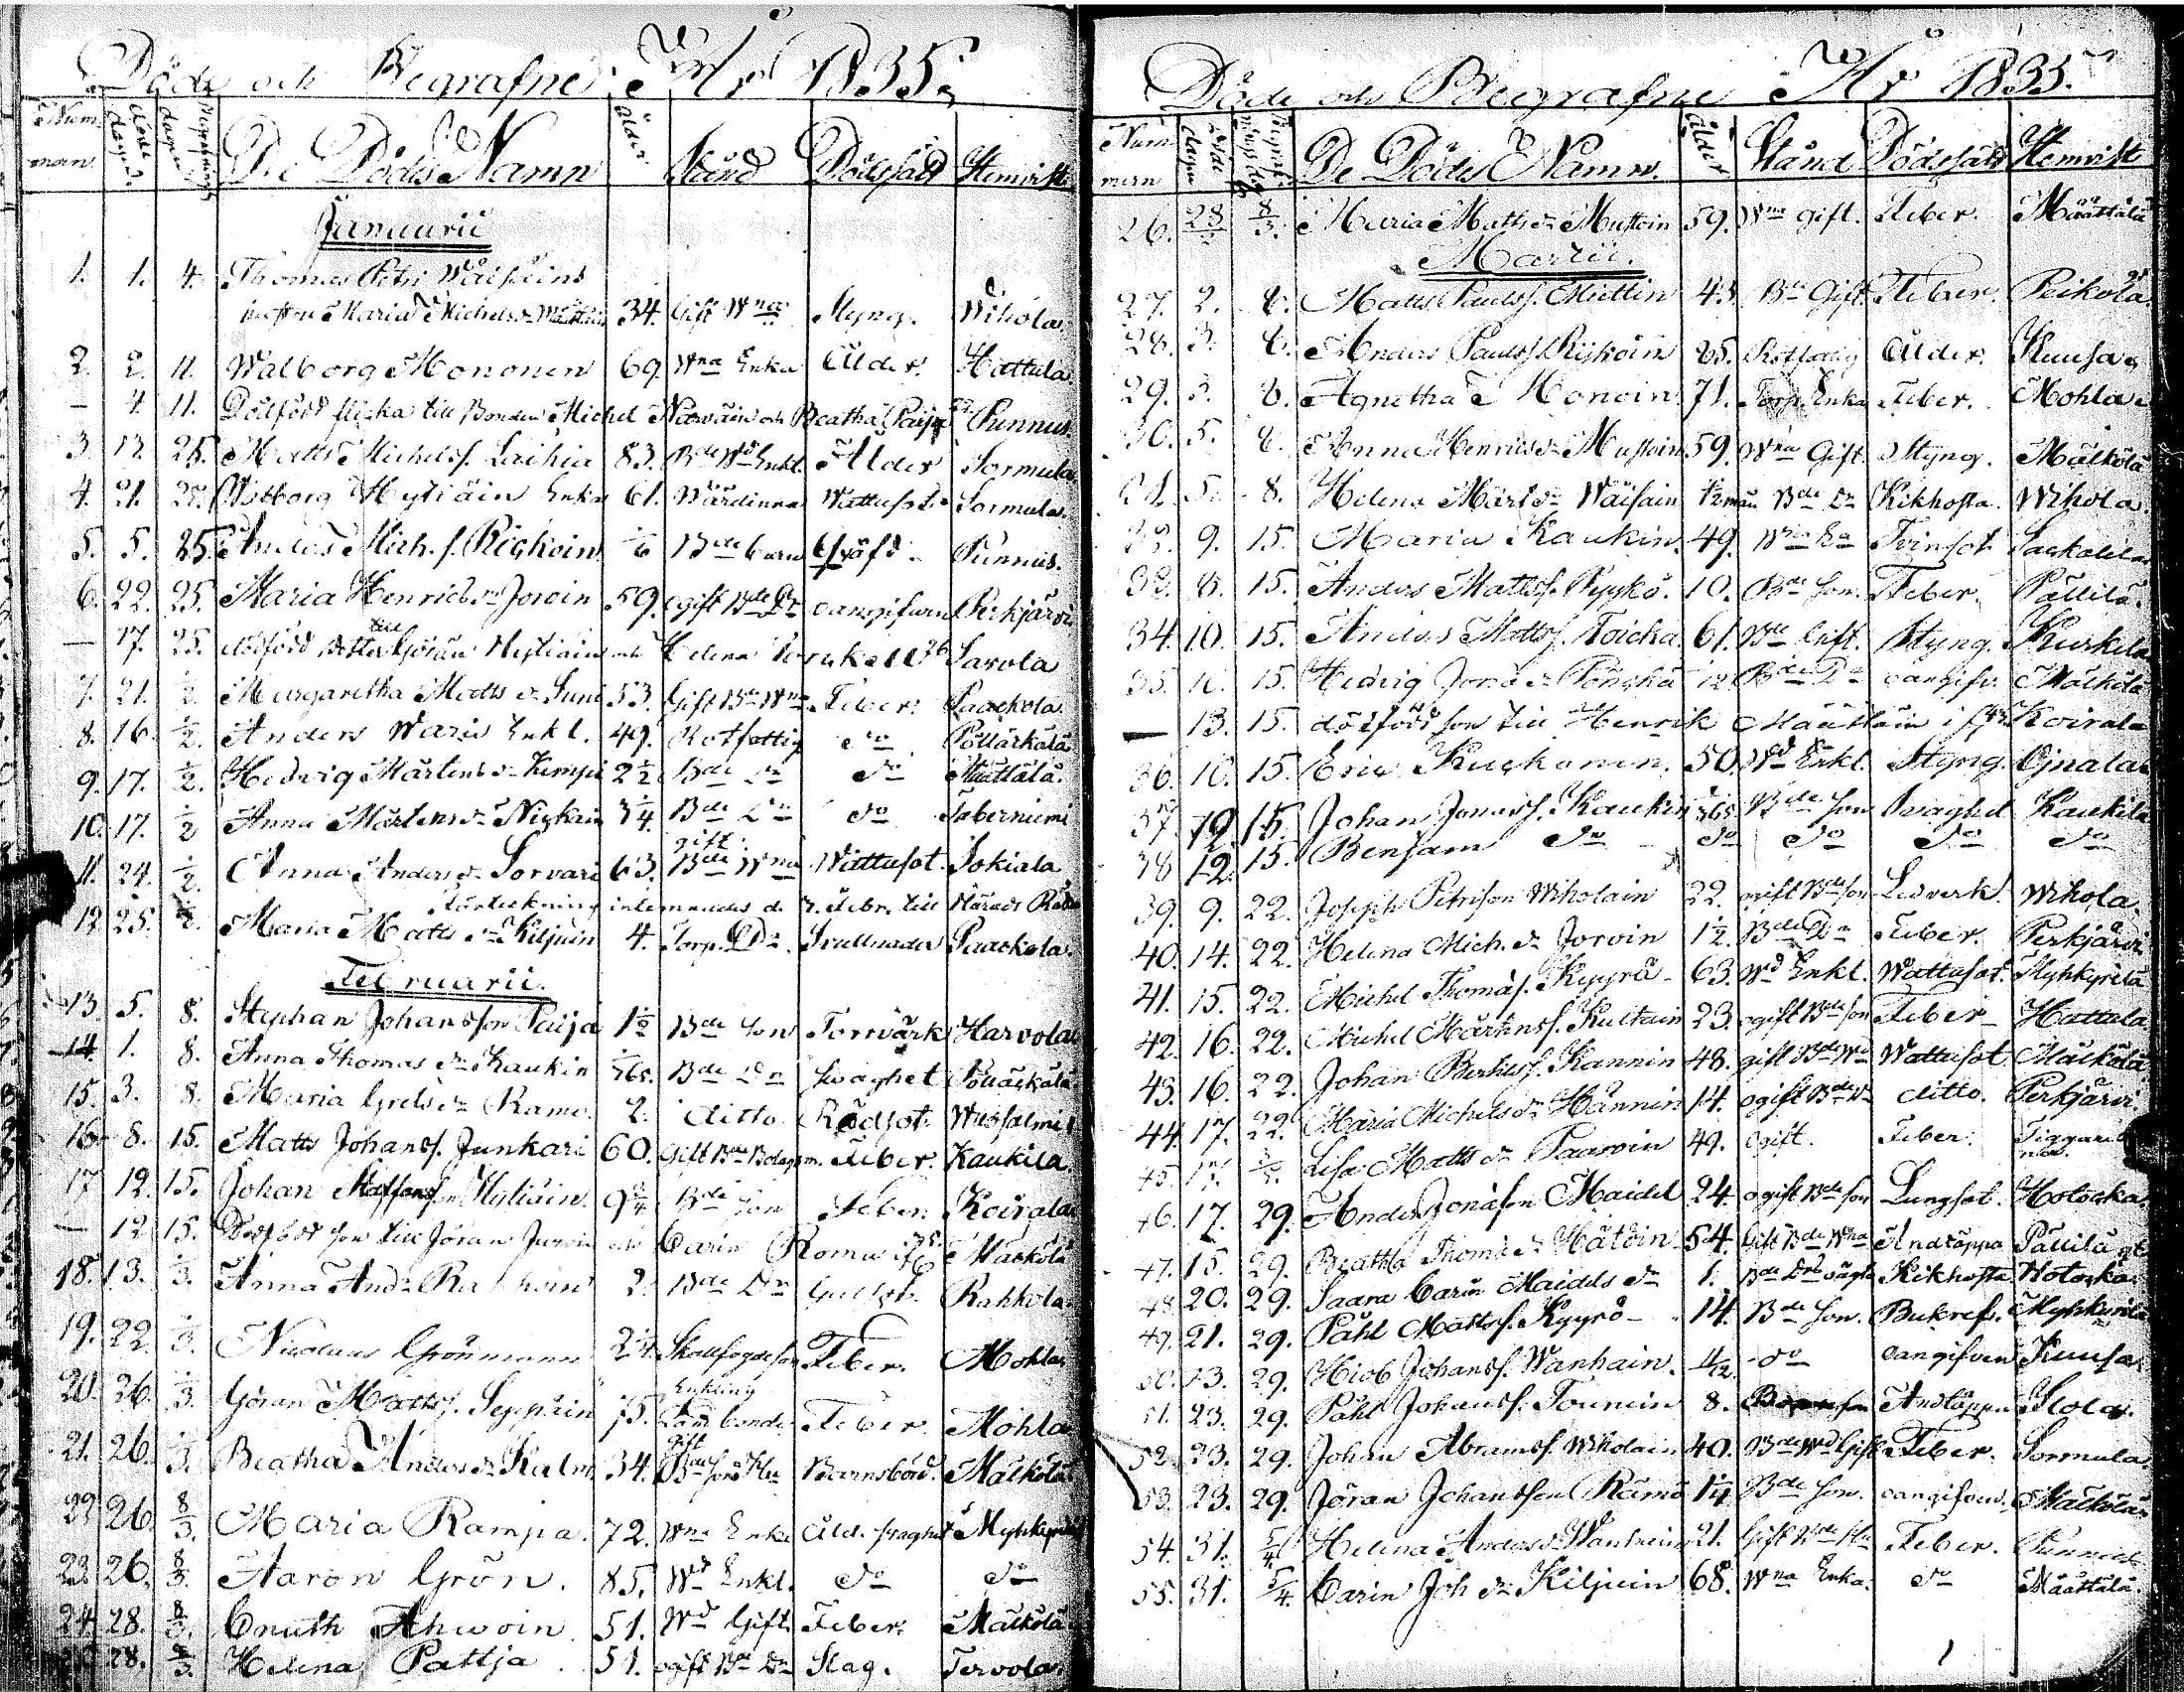 Döde och Begrafne År 1835.
Num
mern
Döde
dagen
Begrafnings
dagen
De Dödas Namn
ålder
Stånd
Dödssätt
Hemvist
Januarii
1. 1. 4. Thomas Petri Waisäins
hustru Maria Michelsdr 34. Gift Wna Styng. Wihola.
2. 2. 11. Walborg Mononen 69. Wna Enka Ålder. Hattula
— 4. 11. Dödföd flicka till Bonden Michel och Beatha Punnus.
3. 13. 25. Matts Michelsf. Laihia 83. Bde Wd Enkl. Ålder Sormula
4. 21. 25. Walborg Hytiäin Enka 61. Wärdinna Wattusot. Sormula.
5. 5. 25. Anders Mich. f. Rigkoin Bde barn Qväfd. Punnus.
6. 22. 25. Maria Henrichsdr Joroin 59. ogift Bde Dr oangifven Perkjärvi
— 17. 25. dödföd dotter till Göran Hytiäin och Helena Savola
7. 21. ½ Margaretha Matts dr Suni 53. Gift Bde Wna Feber. Paackola.
8. 16. ½ Anders Waris Enkl. 49. Rotfattig do Pölläckälä
9. 17. ½ Hedvig Mårtens dr Kempi 2½ Bde Dr do Määttälä.
10. 17. ½ Anna Mårtens dr Nigkain 3¼ Bde Dr do Taberniemi
11. 24. ½ Anna Anders dr Sorvari 63. gift Bde Wna Wattusot. Jokiala
Förteckning internerades d. 2. Febr. till Härads
12. 25. ½ Maria Matts dr Kiljuin 4. Torp. Dr. Paackola.
Februarii.
13. 5. 8. Stephan Johansson Paija 1½ Bde Son Torrvärk Harvola
14. 1. 8. Anna Thomas dr Kaukin Bde Dr svaghet Pölläckälä
15. 3. 8. Maria Grels dr Rämö. 2. ditto Rödsot Wuosalmi
16. 8. 15. Matts Johansf. Junkari 60. Gift Bde Bolagsm. Feber. Kaukila
17 12. 15. Johan Staffansson Hytiäin. 9¾ Bde Son Feber. Koirala
— 12 15. Dödföd son till Jöran och Carin Romu Mälkölä
18. 13. ⅓ Anna And. dr 2. Bde Dr Gulsot. Rahkola.
19. 22. ⅓ Nicolaus Grönmann 24. Skallfogdeson Feber. Mohla
20. 26. ⅓ Göran Mattsf. Seppäin 75. Enkling Landbonde. Feber. Mohla
21. 26. ⅓ Beatha Anders dr Kulm 34. Gift Bde Sons Hu Barnsbörd. Mälkölä
22 26. 8/3. Maria Rampa. 72. Wna Enka Åld. svaghet Myhkyrilä
23. 26. 8/3. Aaron Grön. 85. Wd Enkl. do do
24. 28. 8/3. Cnuth Ahwoin 51. Wd Gift. Feber. Mälkölä
25. 28. 8/3. Helena Pattja. 51. ogift Bde Dr Slag. Tervola.
Döde och Begrafne År 1835.
Num
mern
Döde
dagen
De Dödas Namn.
ålder
Stånd
Dödssätt
Hemvist
26. 28 8/3. Maria Matts dr Mustoin 59. Wna gift. Feber. Määttälä
Martii.
27. 2. 8. Matts Paulsf. Miettin 43. Bde Gift Feber. Peikola.
28. 3. 8. Anders Paulsf. Rijkoin 85. Rotfattig Ålder. Kuusa
29. 5. 8. Agnetha Monoin. 71. Torp. Enka Feber. Mohla.
30. 5. 8. Anna Henrics dr Mustoin 59. Wna Gift. Styng. Mälkölä
31. 5. 8. Helena Mårt dr Wäisäin Bde Dr Kikhosta. Wihola.
32. 9. 15. Maria Kaukin. 49. Wna Ea Tvinsot
33. 8. 15. Anders Mattsf. Pyykö. 10. Bde Son. Feber. Pällilä.
34. 10. 15. Anders Mattsf. Toicka 61. Bde Gift. Styng. Kurkila
35. 10. 15. Hedvig Jonæ dr Pönskä Bde Dr oangifv. Mälkölä
— 13. 15. dödfödd son till Henrik Määttäin Koirala
36. 10. 15. Eric Kuckonen. 50. Wd Enkl. Styng. Ojnala.
37. 12 15. Johan Jonasf. Kaukin Bde Son Svaghet Kaukila
38 12. 15. Benjam do do do do do
39. 9. 22. Joseph Petrison Wiholain 22. ogift Bde Son Ledverk. Wihola.
40. 14. 22. Helena Mich. dr Jorvin 1½ Bde Dr Feber. Perkjärvi
41. 15. 22. Michel Thomasf. Kyyrö 63. Wd Enkl. Wattusot. Myhkyrilä
42. 16. 22. Michel Mårtensf. Kultain 23. ogift Bde Son Feber Hattula
43. 16. 22. Johan Bertilsf. Kannin 48. gift Bde Wattusot Mälkölä
44. 17. 22. Maria Michels dr Hännin 14. ogift Bde Dr ditto. Perkjärvi
45. 17. Lisa Matts dr Paavoin 49. Ogift. Feber. Tiggare
46. 17. 29. Anders Jonason Maidel 24. ogift Bde Son Lungsot. Hotocka.
47. 15. 29. Beatha Thomæ dr Hätöin 54. Gift Bde Wna Andtäppa Pällilä
48. 20. 29. Saara Carin Maidels dr 1. Bde Kikhosta Hotocka
49. 21. 29. Påhl Mattsf. Kyyrö 14. Bde Son. Bukref. Myhkyrilä
50. 23. 29. Hiob Johansf. Wanhain. do oangifven Kuusa
51. 23. 29. Påhl Johansf. Tounein 8. Andtäppa Ilola.
52. 23. 29. Johan Abramsf. Wiholain 40. Bde Wd Gift Feber. Sormula.
53. 23. 29. Jöran Johansson Rämö 1¼ Bde Son. oangifven. Mälkölä
54. 31. 5/4 Helena Anders dr Wanhain 21. Gift Bde Hu Feber. Punnus
55. 31. 5/4. Carin Joh dr Kiljuin 68. Wna Enka. do Määttälä.